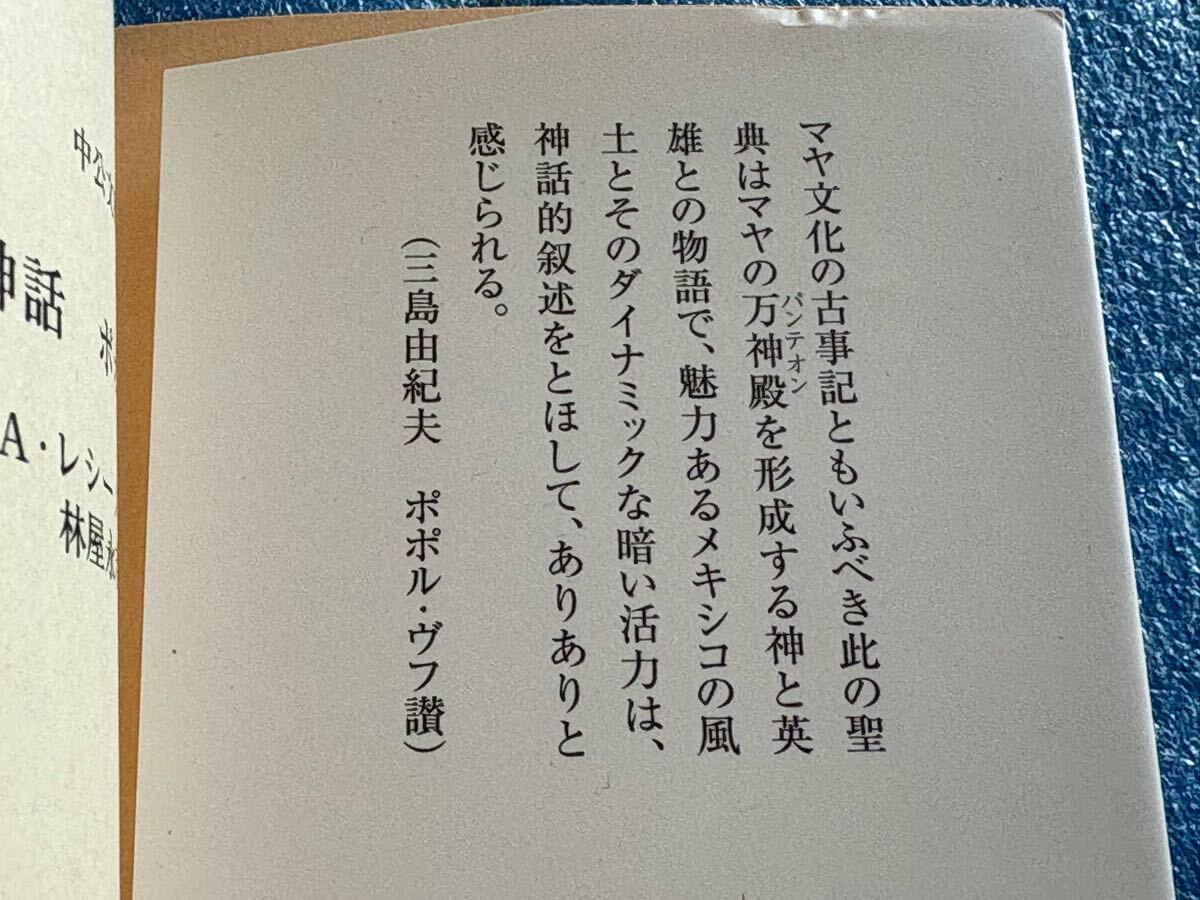 マヤ文化の古事記ともいふべき此の聖
典はマヤの万神殿を形成する神と英
パンテオン
雄との物語で、魅力あるメキシコの風
土とそのダイナミックな暗い活力は、
神話的叙述をとほして、ありありと
感じられる。
(三島由紀夫 ポポル・ヴフ讃)
中公
神話
ポ
A・レシー
林屋永